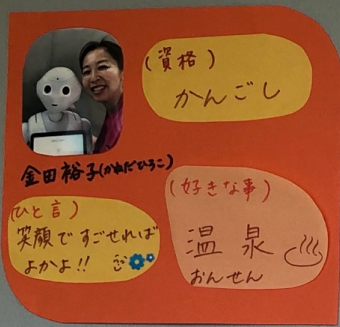 (資格)
かんごし
金田裕子(かねだひろこ)
(ひと言)
笑顔ですごせれば
よかよ!!
(好きな事)
温泉♨
おんせん